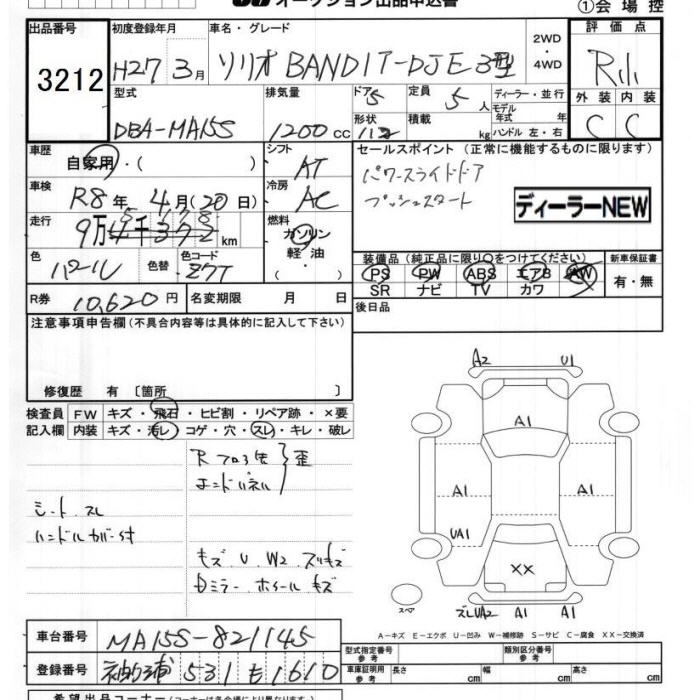 オークション出品申込書
①会場控
出品番号
3212
初度登録年月
H27 3月
車名・グレード
ソリオ BANDIT-DJE 3型
2WD
・
4WD
評価点
外装 内装
C C
型式
DBA-MA15S
排気量
1200cc
ドア 5
形状
定員 5人
積載 kg
ディーラー・並行
モデル年式 年式
ハンドル 左・右
車歴
自家用・( )
シフト
AT
車検
R8年 4月(20日)
冷房
AC
走行
km
燃料
ガソリン
軽油
・
色
パール
色替
色コード
Z7T
R券
10,620円
名変期限 月 日
セールスポイント (正常に機能するものに限ります)
パワースライドドア
プッシュスタート
ディーラーNEW
装備品 (純正品に限り○をつけてください)
PS PW ABS エアB AW
SR ナビ TV カワ
新車保証書
有・無
後日品
注意事項申告欄 (不具合内容等は具体的に記入して下さい)
修復歴 有 〔箇所 〕
検査員
記入欄
FW キズ・飛石・ヒビ割・リペア跡・×要
内装 キズ・汚レ・コゲ・穴・スレ・キレ・破レ
Rフロア先
エンドパネル
歪
シート スレ
ハンドルカバー付
キズ U W2 スリキズ
Dミラー ホイール キズ
A2 U1
A1
A1 A1
UA1
××
スペア
ズレUA2 A1 A1
A-キズ E-エクボ U-凹み W-補修跡 S-サビ C-腐食 XX-交換済
車台番号
MA15S-821145
登録番号
袖ヶ浦 531 も 1610
型式指定番号
参考
類別区分番号
参考
車庫証明用
参考
長さ cm 幅 cm 高さ cm
希望出品コーナー